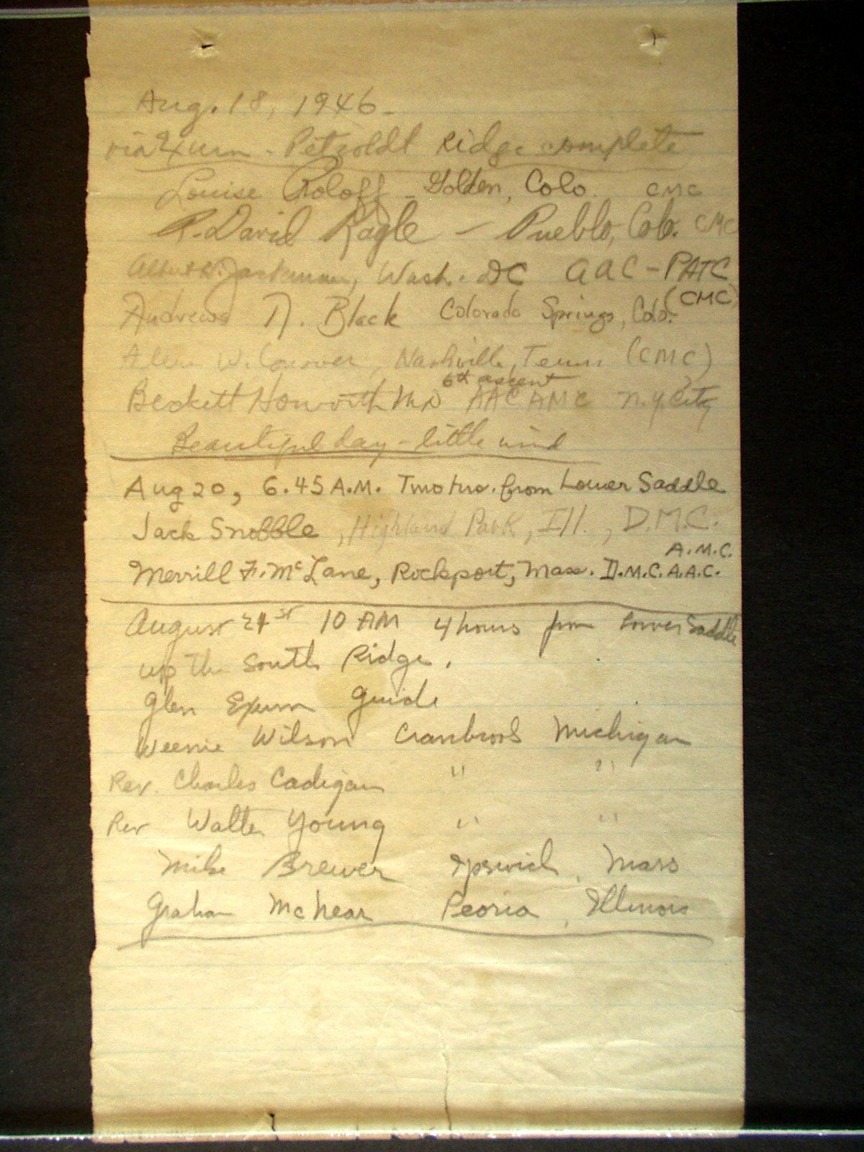 Aug. 18, 1946 -
via Exum - Petzoldt Ridge complete
Louise Roloff - Golden, Colo. CMC
R. David Kagle - Pueblo, Colo. CMC
Albert W. Jackman, Wash. DC AAC - PATC
Andrews N. Black Colorado Springs, Colo. (CMC)
W. Conover, Nashville, Tenn (CMC)
6th ascent
Beckett Howorth MD AAC AMC N.Y. City
Beautiful day - little wind
Aug 20, 6.45 A.M. Two hrs. from Lower Saddle
Jack Snobble, Highland Park, Ill., D.M.C.
A.M.C.
Merrill F. McLane, Rockport, Mass. D.M.C. A.A.C.
August 21st 10 AM 4 hours from Lower Saddle
up the South Ridge.
Glen Exum Guide
Weenie Wilson Cranbrook Michigan
Rev. Charles Cadigan " "
Rev Walter Young " "
Mike Brewer Ipswich, Mass
Graham McNear Peoria, Illinois